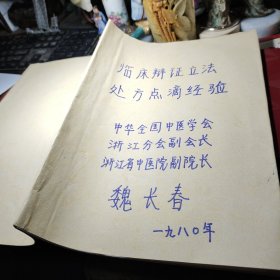 临床辩证立法
处方点滴经验
中华全国中医学会
浙江分会副会长
浙江省中医院副院长
魏长春
一九八〇年